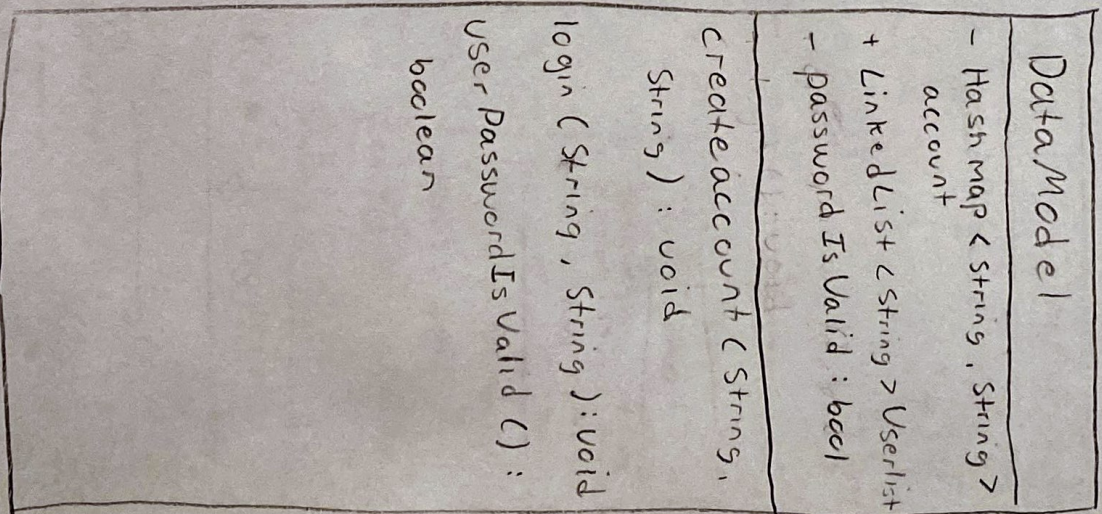 DataModel
- Hashmap<String, String>
account
+ LinkedList<String> Userlist
- passwordIsValid : bool
createaccount (String,
String) : void
login (String, String) : void
userPasswordIsValid () :
boolean